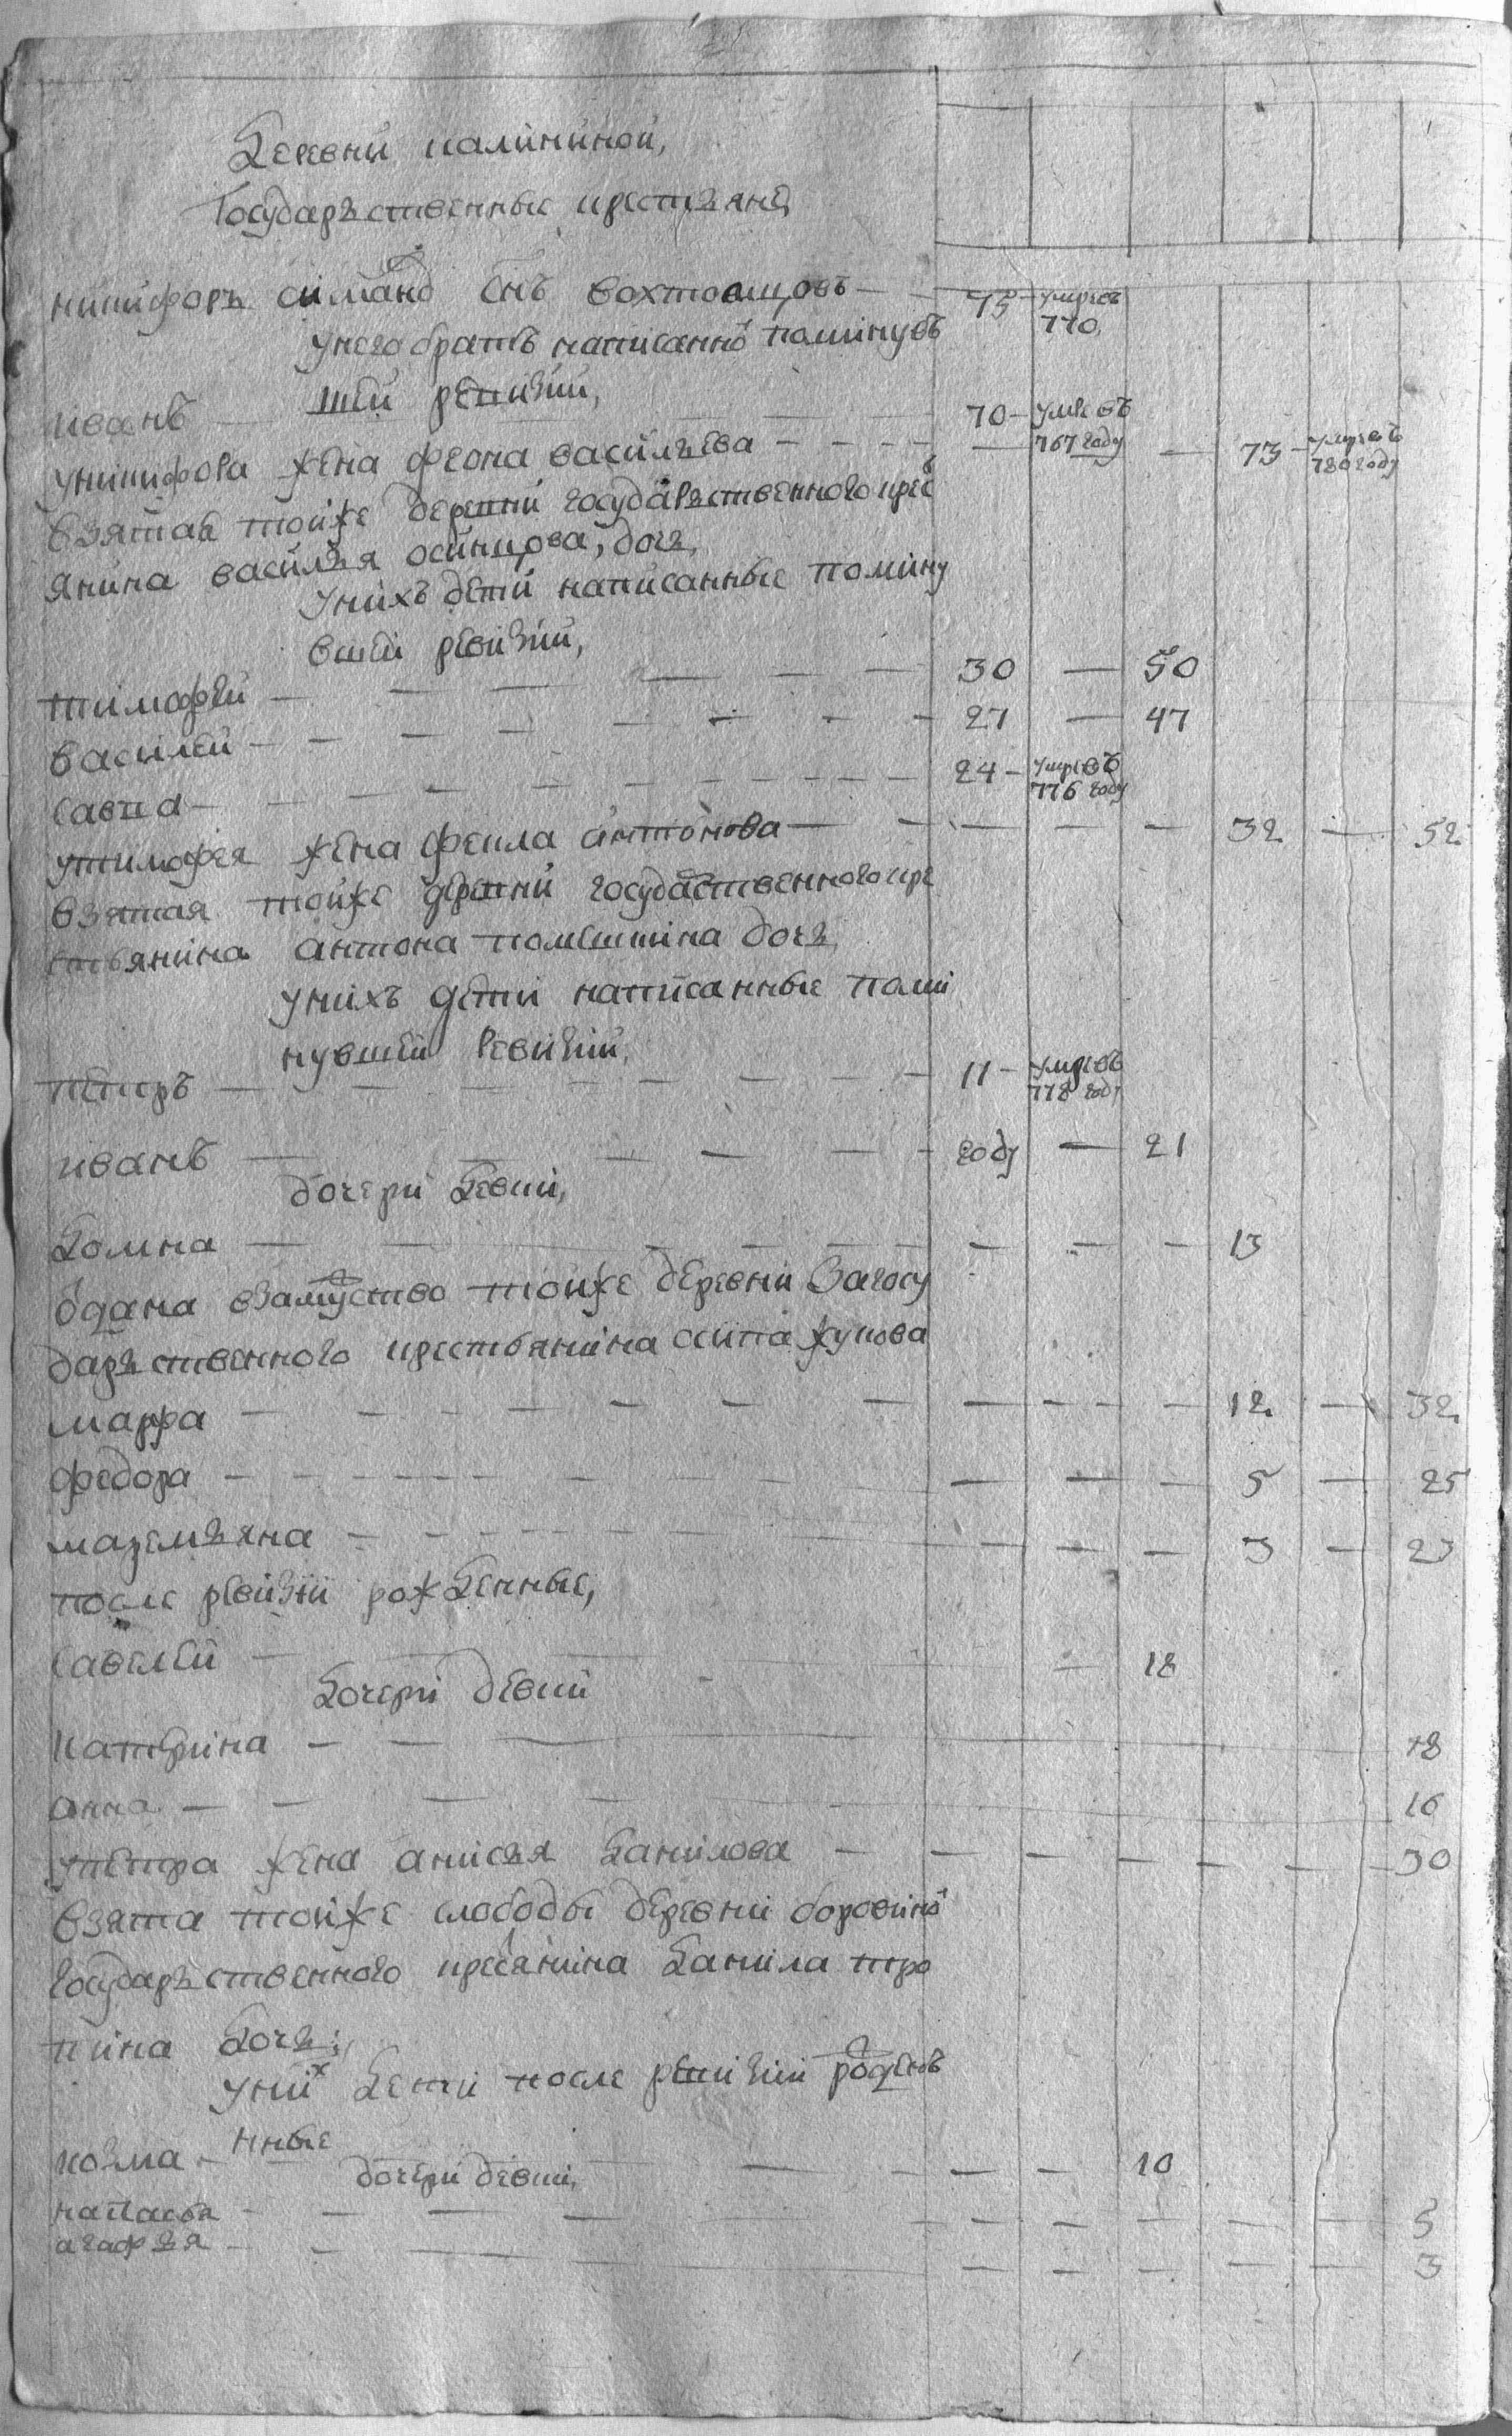 Деревни калининой,
Государъственные крестьянѣ
никифоръ симано снъ вохтомцовъ — 75 — умре въ 770,
унего братъ написанно поминувъ
шей ревизии,
иванъ — 70 — умре въ 767 году
уникифора жена феона васильева — — 73 — умре въ 780 году
взятая тойже деревни государственного крес
янина василья осинцова, дочь,
унихъ дети написанные помину
вшей ревизии,
тимофей — 30 — 50
василей — 27 — 47
савка — 24 — умре въ 776 году
утимофея жена фекла антонова — — — — 32 — 52
взятая тойже деревни государственного кре
стьянина антона дочь,
унихъ дети написанные поми
нувшей ревизии,
петръ — 11 — умре въ 778 году
иванъ — году — 21
дочери девки,
Домна — — — — 13
одана взамуство тойже деревни загосу
даръственного крестьянина осипа жукова
марфа — — — — 12 — 32
федора — — — — 5 — 25
маремьяна — — — — 3 — 23
после ревизии рожденные,
савелей — — 18
дочери девки
катерина — — 18
анна — 16
упетра жена анисья данилова — — — — — — 30
взята тойже слободы деревни боровино
государъственного кресянина данила тро
пина дочь,
уних дети после ревизии рожденъ
нные
козма — — — 10
дочери девки,
настасья — — — — — — 5
агафья — — — — — — 3